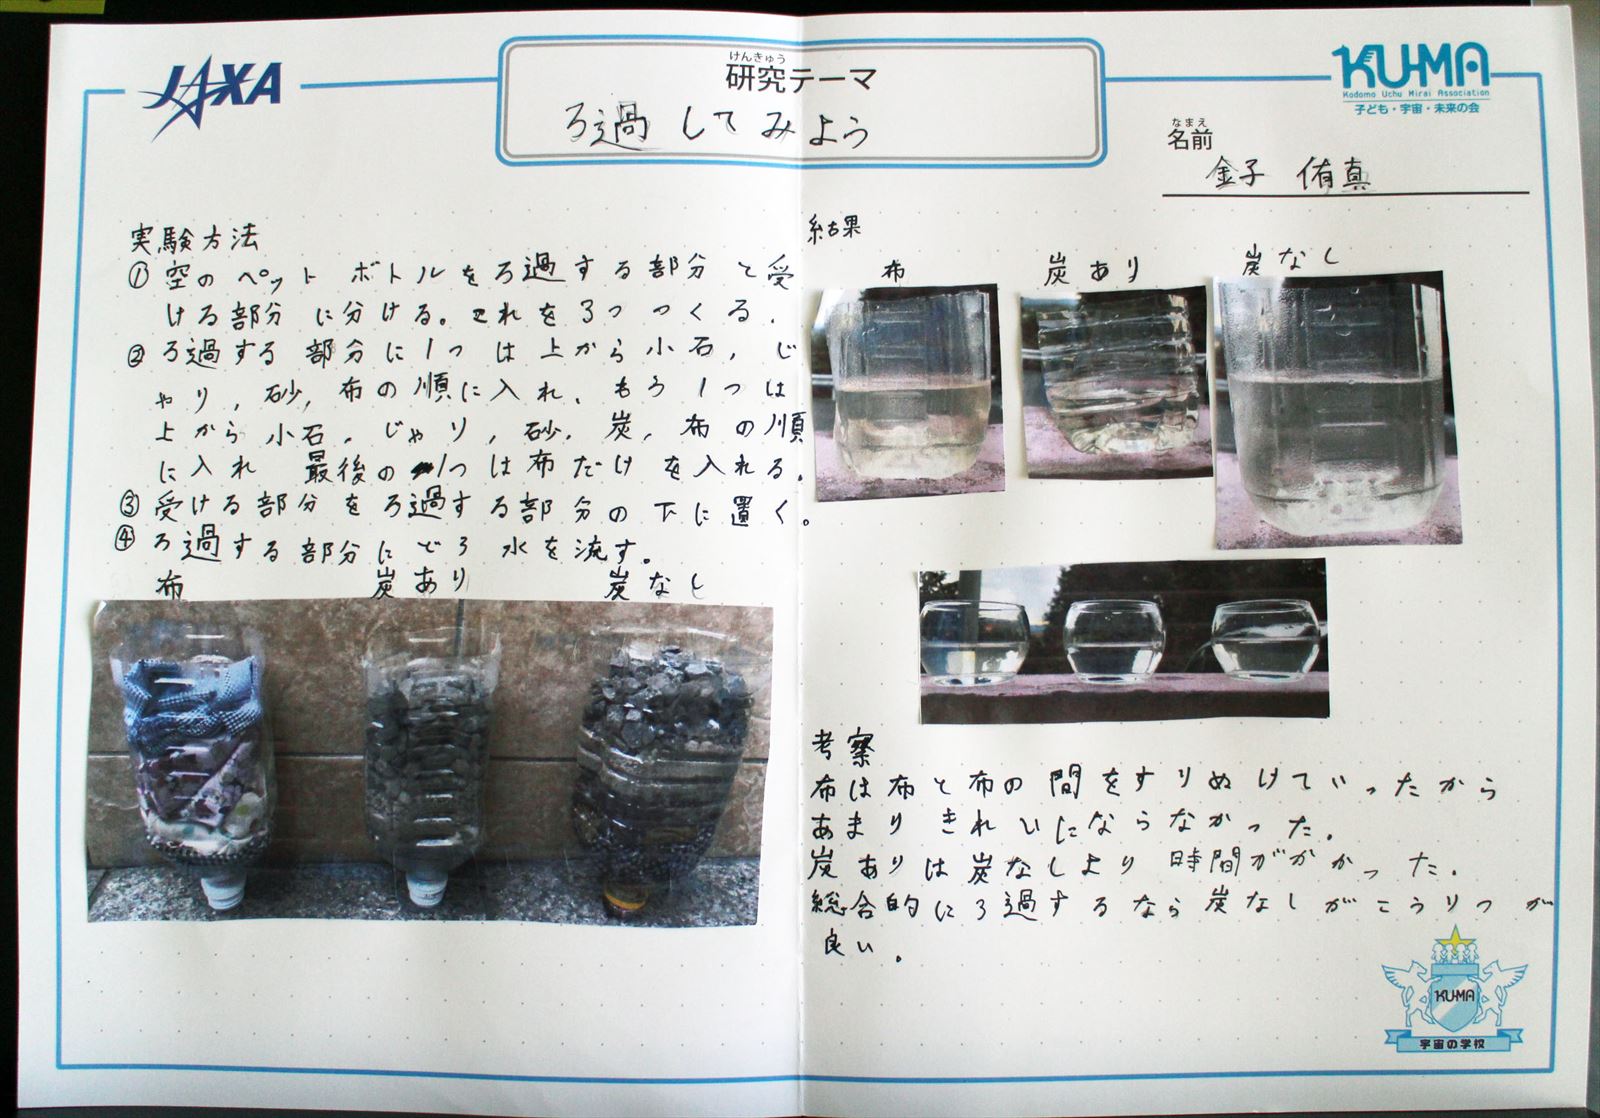 JAXA
けんきゅう
研究テーマ
ろ過してみよう
KU-MA
Kodomo Uchu Mirai Association
子ども・宇宙・未来の会
なまえ
名前
金子 侑真
実験方法
① 空のペットボトルをろ過する部分と受
ける部分に分ける。これを3つつくる.
② ろ過する部分に1つは上から小石,じ
ゃり,砂,布の順に入れ、もう1つは
上から小石,じゃり,砂,炭,布の順
に入れ 最後の1つは布だけを入れる。
③ 受ける部分をろ過する部分の下に置く。
④ ろ過する部分にどろ水を流す。
布 炭あり 炭なし
結果
布 炭あり 炭なし
考察
布は布と布の間をすりぬけていったから
あまりきれいにならなかった.
炭ありは炭なしより時間がかかった.
総合的にろ過するなら炭なしがこうりつが
良い.
KU-MA
宇宙の学校